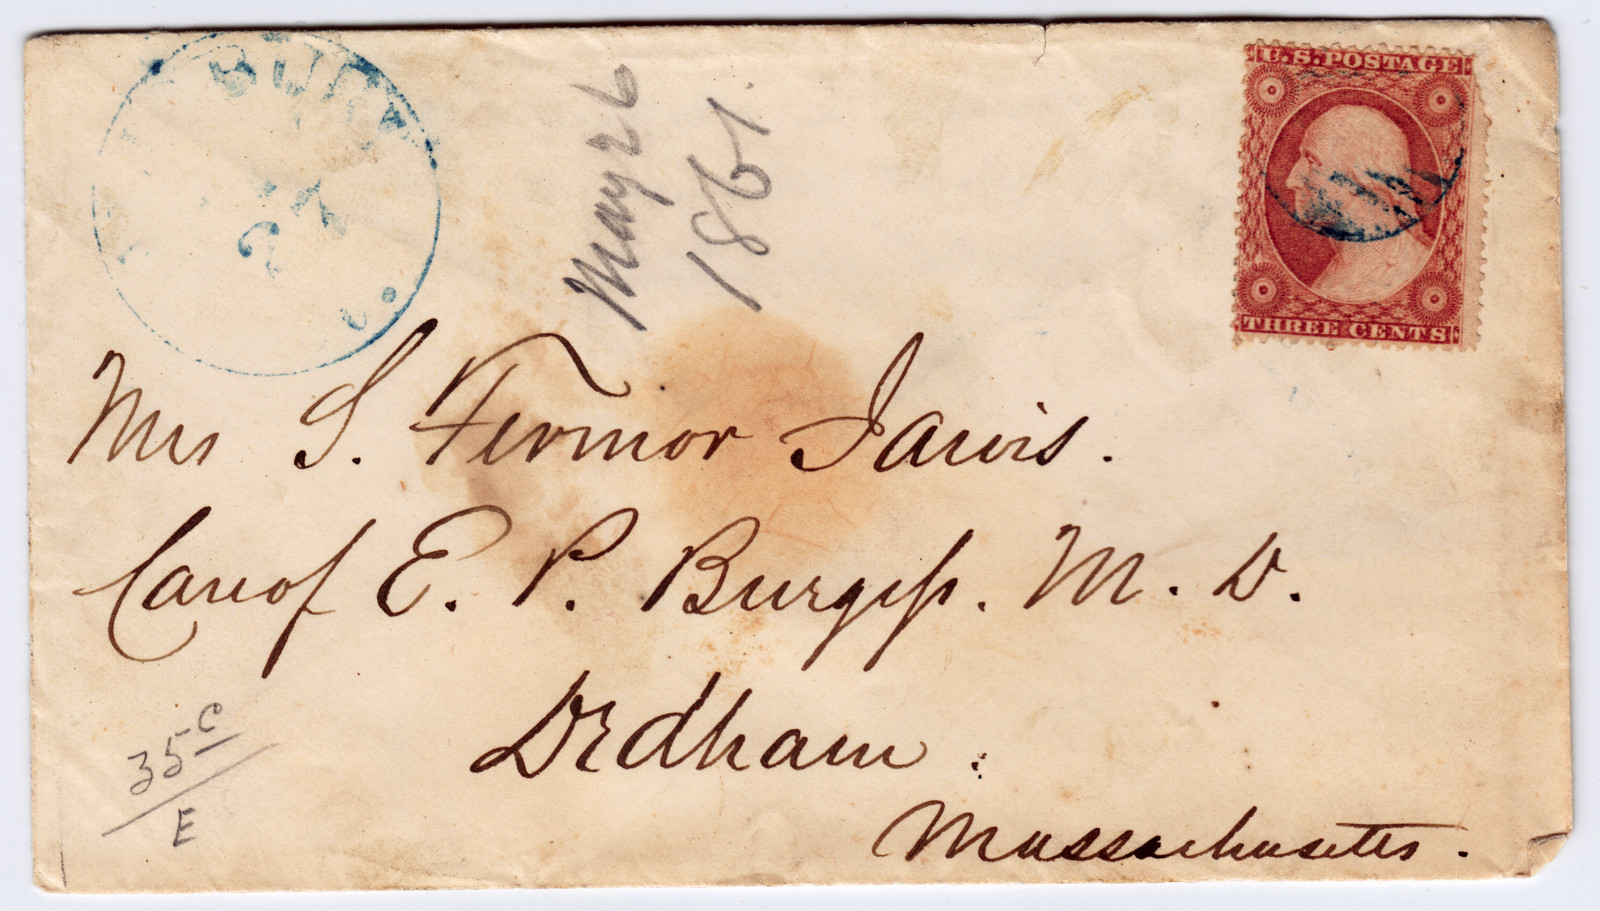 May 26
1861.
U.S. POSTAGE
THREE CENTS
Mrs S. Fermor Jarvis.
Care of E. P. Burgess. M. D.
Dedham.
Massachusetts.
35c
E